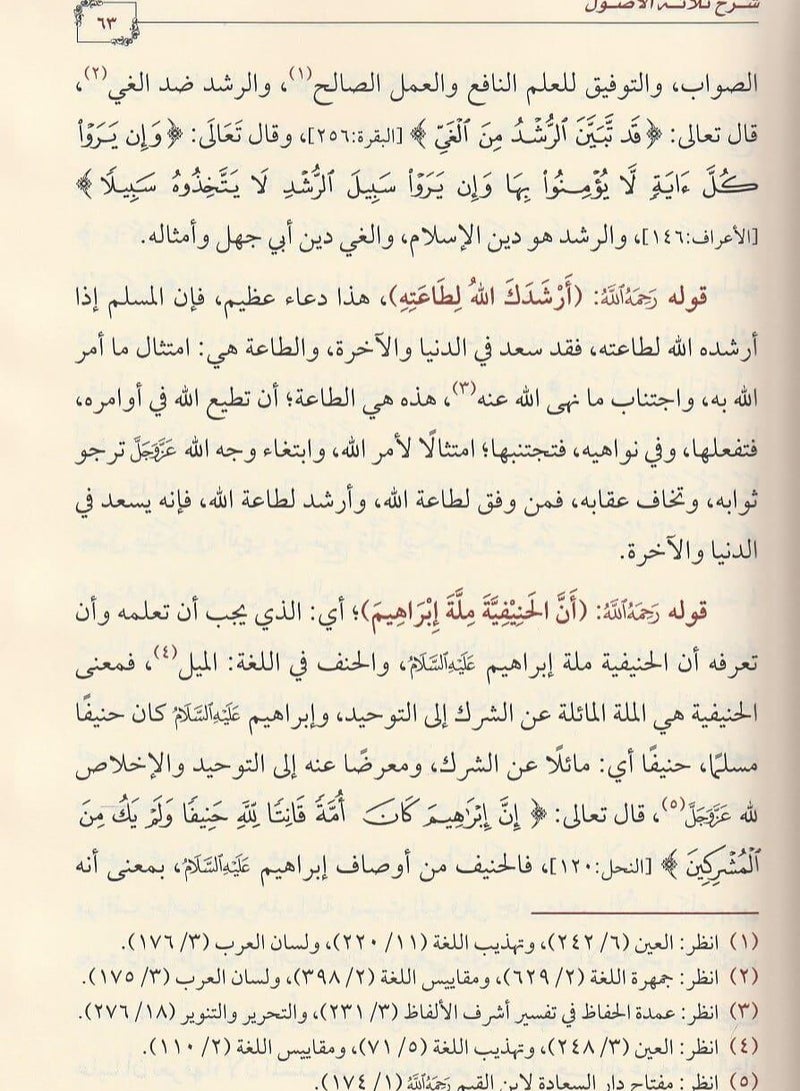 شرح ثلاثة الأصول
٦٣
الصواب، والتوفيق للعلم النافع والعمل الصالح(١)، والرشد ضد الغي(٢)،
قال تعالى: ﴿قَد تَّبَيَّنَ ٱلرُّشۡدُ مِنَ ٱلۡغَيِّ﴾ [البقرة:٢٥٦]، وقال تَعَالَى: ﴿وَإِن يَرَوۡاْ
كُلَّ ءَايَةٖ لَّا يُؤۡمِنُواْ بِهَا وَإِن يَرَوۡاْ سَبِيلَ ٱلرُّشۡدِ لَا يَتَّخِذُوهُ سَبِيلٗا﴾
[الأعراف:١٤٦]، والرشد هو دين الإسلام، والغي دين أبي جهل وأمثاله.
قوله رَحِمَهُ اللَّهُ: (أَرْشَدَكَ اللهُ لِطَاعَتِهِ)، هذا دعاء عظيم، فإن المسلم إذا
أرشده الله لطاعته، فقد سعد في الدنيا والآخرة، والطاعة هي: امتثال ما أمر
الله به، واجتناب ما نهى الله عنه(٣)، هذه هي الطاعة؛ أن تطيع الله في أوامره،
فتفعلها، وفي نواهيه، فتجتنبها؛ امتثالًا لأمر الله، وابتغاء وجه الله عَزَّوَجَلَّ ترجو
ثوابه، وتخاف عقابه، فمن وفق لطاعة الله، وأرشد لطاعة الله، فإنه يسعد في
الدنيا والآخرة.
قوله رَحِمَهُ اللَّهُ: (أَنَّ الحَنِيْفِيَّةَ مِلَّةَ إِبْرَاهِيمَ)؛ أي: الذي يجب أن تعلمه وأن
تعرفه أن الحنيفية ملة إبراهيم عَلَيْهِ السَّلَامُ، والحنف في اللغة: الميل(٤)، فمعنى
الحنيفية هي الملة المائلة عن الشرك إلى التوحيد، وإبراهيم عَلَيْهِ السَّلَامُ كان حنيفًا
مسلمًا، حنيفًا أي: مائلًا عن الشرك، ومعرضًا عنه إلى التوحيد والإخلاص
لله عَزَّوَجَلَّ(٥)، قال تعالى: ﴿إِنَّ إِبۡرَٰهِيمَ كَانَ أُمَّةٗ قَانِتٗا لِّلَّهِ حَنِيفٗا وَلَمۡ يَكُ مِنَ
ٱلۡمُشۡرِكِينَ﴾ [النحل:١٢٠]، فالحنيف من أوصاف إبراهيم عَلَيْهِ السَّلَامُ، بمعنى أنه
(١) انظر: العين (٦/ ٢٤٢)، وتهذيب اللغة (١١/ ٢٢٠)، ولسان العرب (٣/ ١٧٦).
(٢) انظر: جمهرة اللغة (٢/ ٦٢٩)، ومقاييس اللغة (٢/ ٣٩٨)، ولسان العرب (٣/ ١٧٥).
(٣) انظر: عمدة الحفاظ في تفسير أشرف الألفاظ (٣/ ٢٣١)، والتحرير والتنوير (١٨/ ٢٧٦).
(٤) انظر: العين (٣/ ٢٤٨)، وتهذيب اللغة (٥/ ٧١)، ومقاييس اللغة (٢/ ١١٠).
(٥) انظر: مفتاح دار السعادة لابن القيم رَحِمَهُ اللَّهُ (١/ ١٧٤).